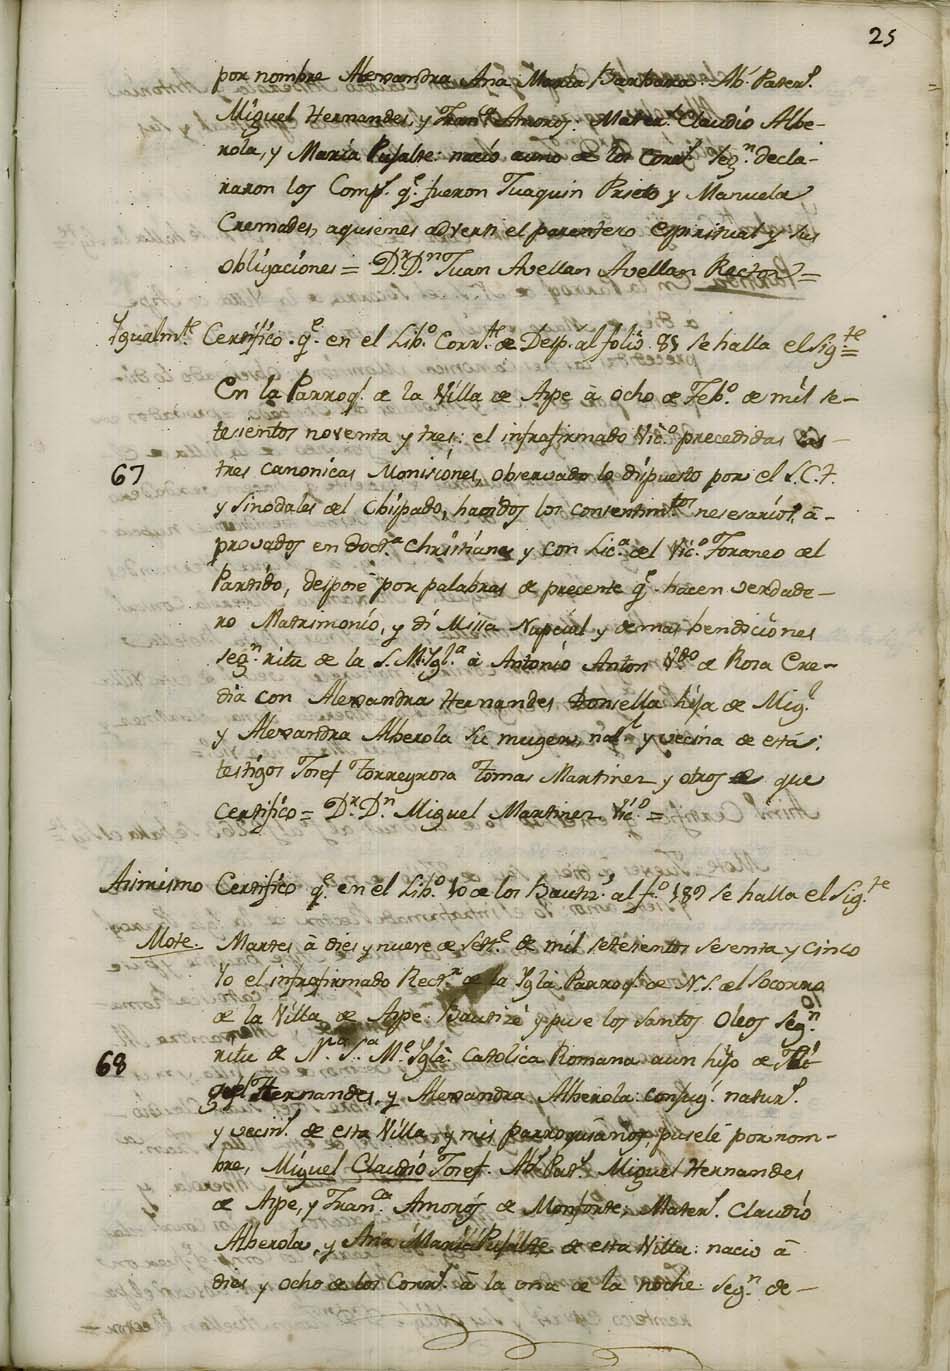 25
por nombre Alexandra Ana María Barbara. Ab.ˢ Pater.ˢ
Miguel Hernandes, y Fran.ᶜᵃ Amoros. Mater.ˢ Claudio Albe-
rola, y María Pujalte: nació a uno de los Corr.ˢ seg.ⁿ decla-
raron los Comp.ˢ q.ᵉ fueron Juaquin Prieto y Manuela
Cremades, aquienes advertí el parentezco espiritual y sus
obligaciones = D.ʳ D.ⁿ Juan Avellan Avellan Rector =
Igualm.ᵗᵉ Certifico q.ᵉ en el Lib.º Corr.ᵗᵉ de Desp. al folio 88 se halla el Sig.ᵗᵉ =
En la Parroq.ˡ de la Villa de Aspe à ocho de Feb.º de mil se-
tesientos noventa y tres: el infrafirmado Vic.º precedidas las
67
tres canonicas Monisiones, observado lo dispuesto por el S.C.T.
y Sinodales del Obispado, havidos los consentim.ᵗᵒˢ nesesarios, a-
provados en Doct.ª Christiana y con Lic.ª del Vic.º Foraneo del
Partido, despose por palabras de precente q.ᵉ hacen verdade-
ro Matrimonio, y dí Missa Nupcial y demas bendiciones
seg.ⁿ ritu de la S. M. Igl.ª à Antonio Anton V.ᵈº de Rosa Cre-
dia con Alexandra Hernandes Donsella hija de Mig.ˡ
y Alexandra Alberola su muger, nat.ˡ y vecina de esta;
testigos Josef Torreyrosa Tomas Martinez y otros de que
certifico = D.ʳ D.ⁿ Miguel Martinez Vic.º =
Asimismo Certifico q.ᵉ en el Lib.º 10 de los Bautiz.ˢ al f.º 189 se halla el Sig.ᵗᵉ
Mote. Martes à dies y nueve de Sett.ᵉ de mil setesientos sesenta y cinco
Yo el infrafirmado Rect.ʳ de la Yglª Parroq.ˡ de N.S. del Socorro
de la Villa de Aspe: Bautizé y puse los Santos Oleos seg.ⁿ
68
ritu de N.ʳᵃ S.ᵗᵃ M.ᵉ Yglª Catolica Romana a un hijo de Mi-
guel Hernandes, y Alexandra Alberola: conjug.ˢ natur.ˢ
y vecin.ˢ de esta Villa, y mis parroquianos, pusele por nom-
bre, Miguel Claudio Josef. Ab.ˢ Pat.ˢ Miguel Hernandes
de Aspe, y Fran.ᶜᵃ Amorós de Monforte, Mater.ˢ Claudio
Alberola, y Ana María Pujalte de esta Villa: nacio à
dies y ocho de los Corr.ˢ à la una de la noche seg.ⁿ de-